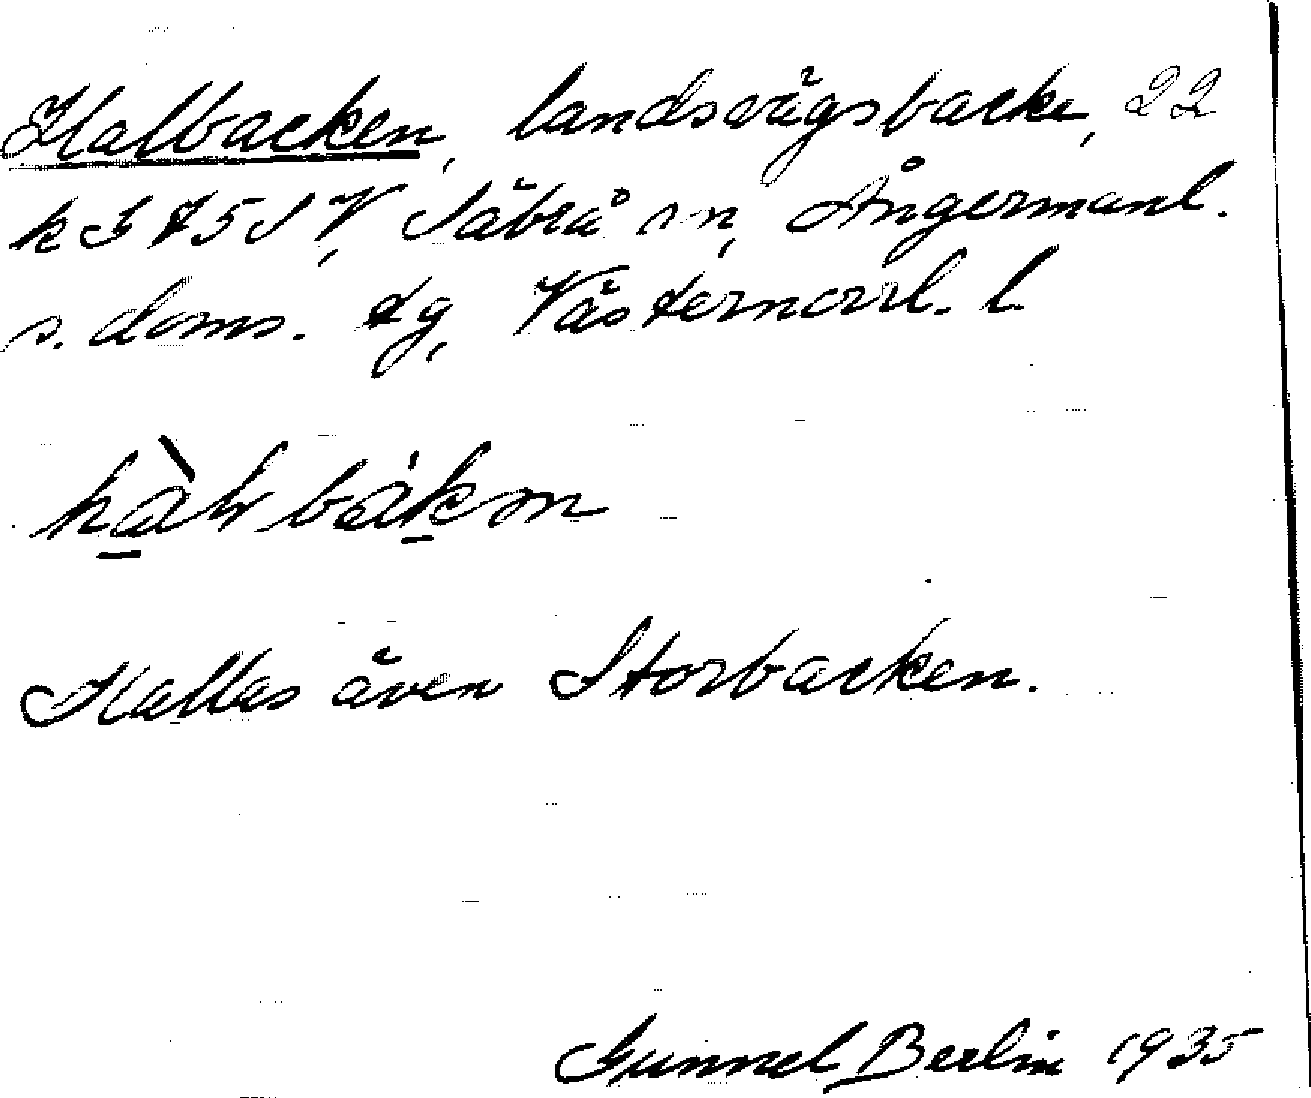 Halbacken, landsvägsbacke, 22
k I 75 S V, Säbrå sn, Ångermanl.
s. doms. tg, Västernorrl. l.
Kallas även Storbacken.
Gunnel Berlin 1935